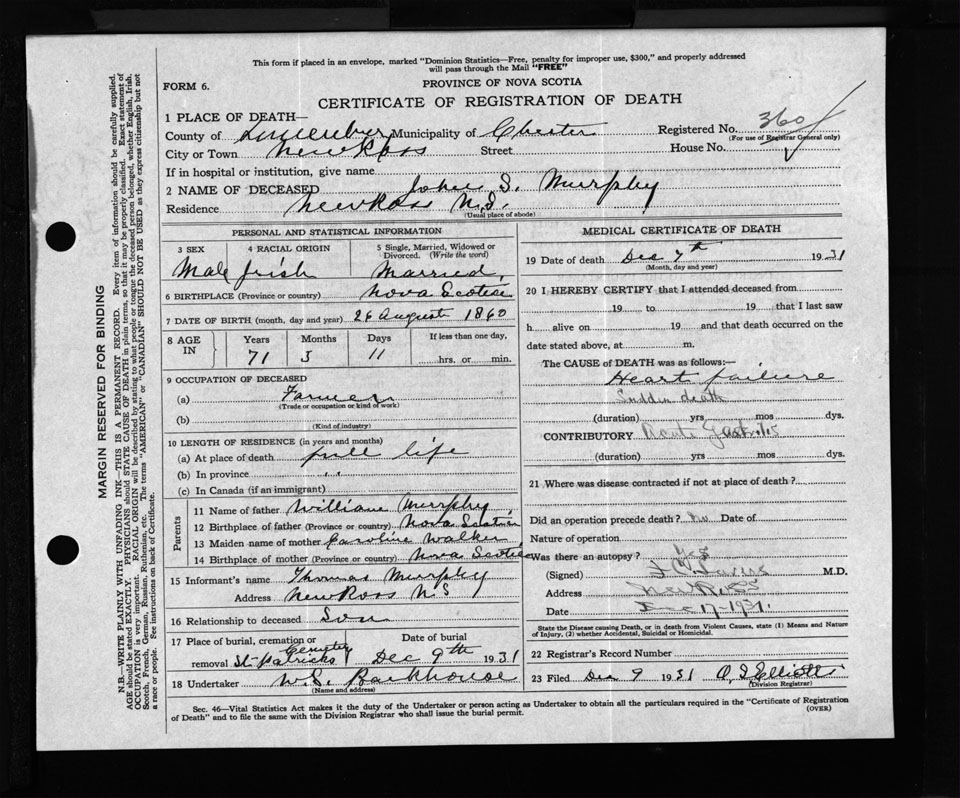 This form if placed in an envelope, marked "Dominion Statistics—Free, penalty for improper use, $300," and properly addressed
will pass through the Mail "FREE"
FORM 6.
PROVINCE OF NOVA SCOTIA
CERTIFICATE OF REGISTRATION OF DEATH
1 PLACE OF DEATH—
County of Lunenburg Municipality of Chester Registered No. 360
(For use of Registrar General only)
City or Town New Ross Street House No.
If in hospital or institution, give name
2 NAME OF DECEASED John S. Murphy
Residence New Ross N.S.
(Usual place of abode)
PERSONAL AND STATISTICAL INFORMATION
3 SEX 4 RACIAL ORIGIN 5 Single, Married, Widowed or Divorced. (Write the word)
Male Irish Married
6 BIRTHPLACE (Province or country) Nova Scotia
7 DATE OF BIRTH (month, day and year) 26 August 1860
8 AGE IN Years Months Days If less than one day,
71 3 11 hrs. or min.
9 OCCUPATION OF DECEASED
(a) Farmer
(Trade or occupation or kind of work)
(b)
(Kind of industry)
10 LENGTH OF RESIDENCE (in years and months)
(a) At place of death full life
(b) In province " "
(c) In Canada (if an immigrant)
Parents
11 Name of father William Murphy
12 Birthplace of father (Province or country) Nova Scotia
13 Maiden name of mother Caroline Walker
14 Birthplace of mother (Province or country) Nova Scotia
15 Informant's name Thomas Murphy
Address New Ross N S
16 Relationship to deceased Son
17 Place of burial, cremation or removal St Patricks Cemetery Date of burial Dec 9th 1931
18 Undertaker W.S. Barkhouse
(Name and address)
MEDICAL CERTIFICATE OF DEATH
19 Date of death Dec 7th 1931
(Month, day and year)
20 I HEREBY CERTIFY that I attended deceased from
19 to 19 that I last saw
h alive on 19 and that death occurred on the
date stated above, at m.
The CAUSE OF DEATH was as follows:—
Heart failure
Sudden death
(duration) yrs mos dys.
CONTRIBUTORY Acute Gastritis
(duration) yrs mos dys.
21 Where was disease contracted if not at place of death?
Did an operation precede death? No Date of
Nature of operation
Was there an autopsy? Yes
(Signed) M.D.
Address New Ross
Date Dec 17-1931.
State the Disease causing Death, or in death from Violent Causes, state (1) Means and Nature
of Injury, (2) whether Accidental, Suicidal or Homicidal.
22 Registrar's Record Number
23 Filed Dec 9 1931 Elliott
(Division Registrar)
Sec. 46—Vital Statistics Act makes it the duty of the Undertaker or person acting as Undertaker to obtain all the particulars required in the "Certificate of Registration
of Death" and to file the same with the Division Registrar who shall issue the burial permit. (OVER)
MARGIN RESERVED FOR BINDING
N.B.—WRITE PLAINLY WITH UNFADING INK—THIS IS A PERMANENT RECORD. Every item of information should be carefully supplied.
AGE should be stated EXACTLY. PHYSICIANS should STATE CAUSE OF DEATH in plain terms, so that it may be properly classified. Exact statement of
OCCUPATION is very important. RACIAL ORIGIN will be described by stating to what people or tongue the deceased person belonged, whether English, Irish,
Scotch, French, German, Russian, Ruthenian, etc. The terms "AMERICAN" or "CANADIAN" SHOULD NOT BE USED as they express citizenship but not
a race or people. See instructions on back of Certificate.